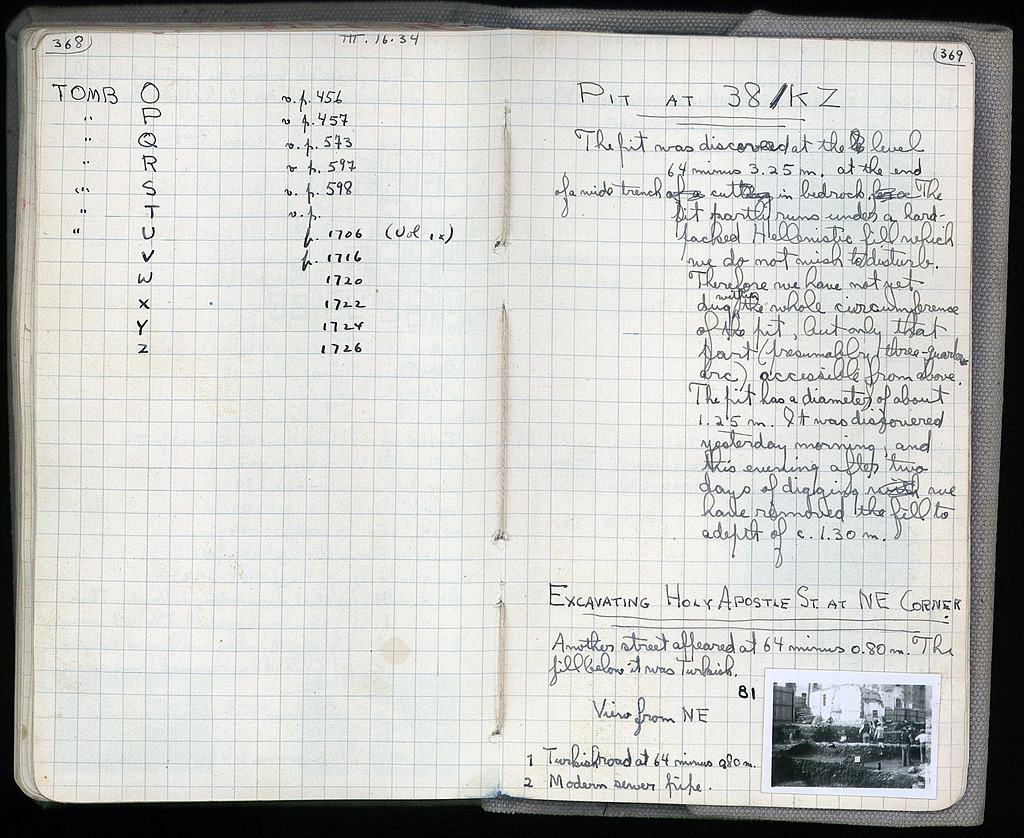 368
III. 16.34
TOMB O v. p. 456
" P v p. 457
" Q v. p. 573
" R v p. 597
" S v. p. 598
" T v. p.
" U p. 1706 (Vol. ix)
V p. 1716
W 1720
X 1722
Y 1724
Z 1726
369
PIT AT 38/KZ
The pit was discovered at the level
64 minus 3.25 m. at the end
of a wide trench cut in bedrock. The
pit partly runs under a hard-
packed Hellenistic fill which
we do not wish to disturb.
Therefore we have not yet
dug within the whole circumference
of the pit, but only that
part (presumably three-quarter
arc) accessible from above.
The pit has a diameter of about
1.25 m. It was discovered
yesterday morning, and
this evening after two
days of digging we
have removed the fill to
a depth of c. 1.30 m.
EXCAVATING HOLY APOSTLE ST. AT NE CORNER
Another street appeared at 64 minus 0.80 m. The
fill below it was Turkish.
81
View from NE
1 Turkish road at 64 minus 0.80 m.
2 Modern sewer pipe.